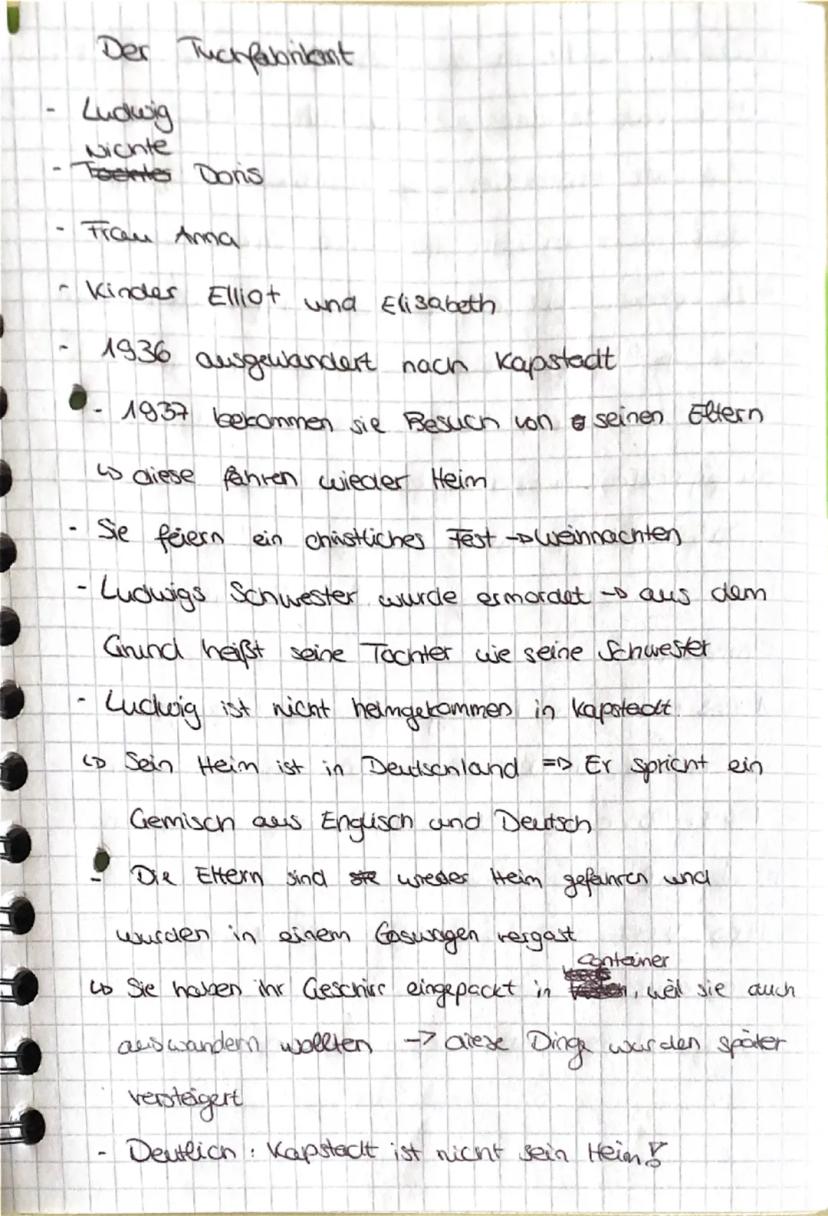 Der Tuchfabrikant
- Ludwig
Nichte
- Tochter Doris
- Frau Anna
- Kinder Elliot und Elisabeth
- 1936 ausgewandert nach Kapstadt
- 1937 bekommen sie Besuch von seinen Eltern
↳ diese fahren wieder Heim
- Sie feiern ein christliches Fest → Weihnachten
- Ludwigs Schwester wurde ermordet → aus dem
Grund heißt seine Tochter wie seine Schwester
- Ludwig ist nicht heimgekommen in Kapstadt.
↳ Sein Heim ist in Deutschland => Er spricht ein
Gemisch aus Englisch und Deutsch
- Die Eltern sind wieder Heim gefahren und
wurden in einem Gaswagen vergast
Container
↳ Sie haben ihr Geschirr eingepackt in , weil sie auch
auswandern wollten → diese Dinge wurden später
versteigert
- Deutlich: Kapstadt ist nicht sein Heim!